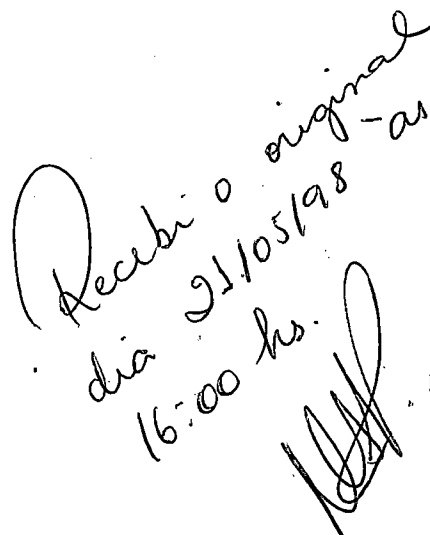 Recebi o original
dia 21/05/98 - as
16:00 hs.